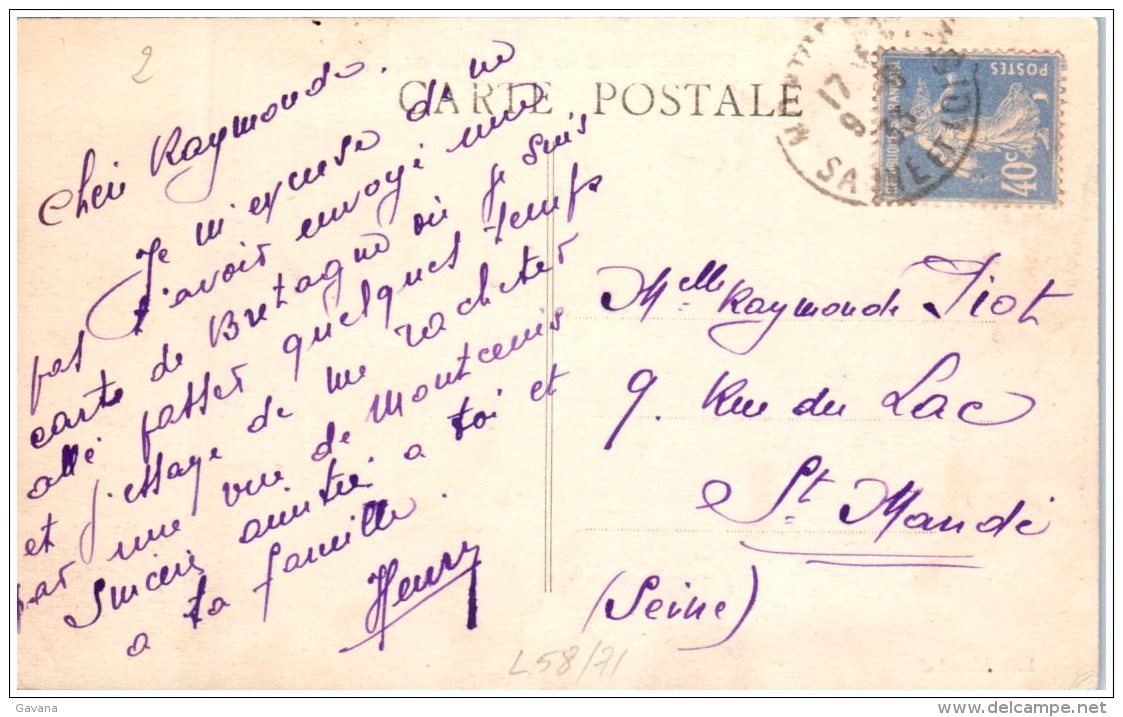 2
CARTE POSTALE
Chère Raymonde.
Je m'excuse de ne
pas t'avoir envoyé une
carte de Bretagne où je suis
allé passer quelques temps
et j'essaye de me racheter
par une vue de Montcenis
Sincère amitié a toi et
a ta famille.
Henry
17
9
SAONE ET LOIRE
POSTES
40c
Melle Raymonde Piot
9. Rue du Lac
St Mandé
(Seine)
L58/71
Gavana
www.delcampe.net